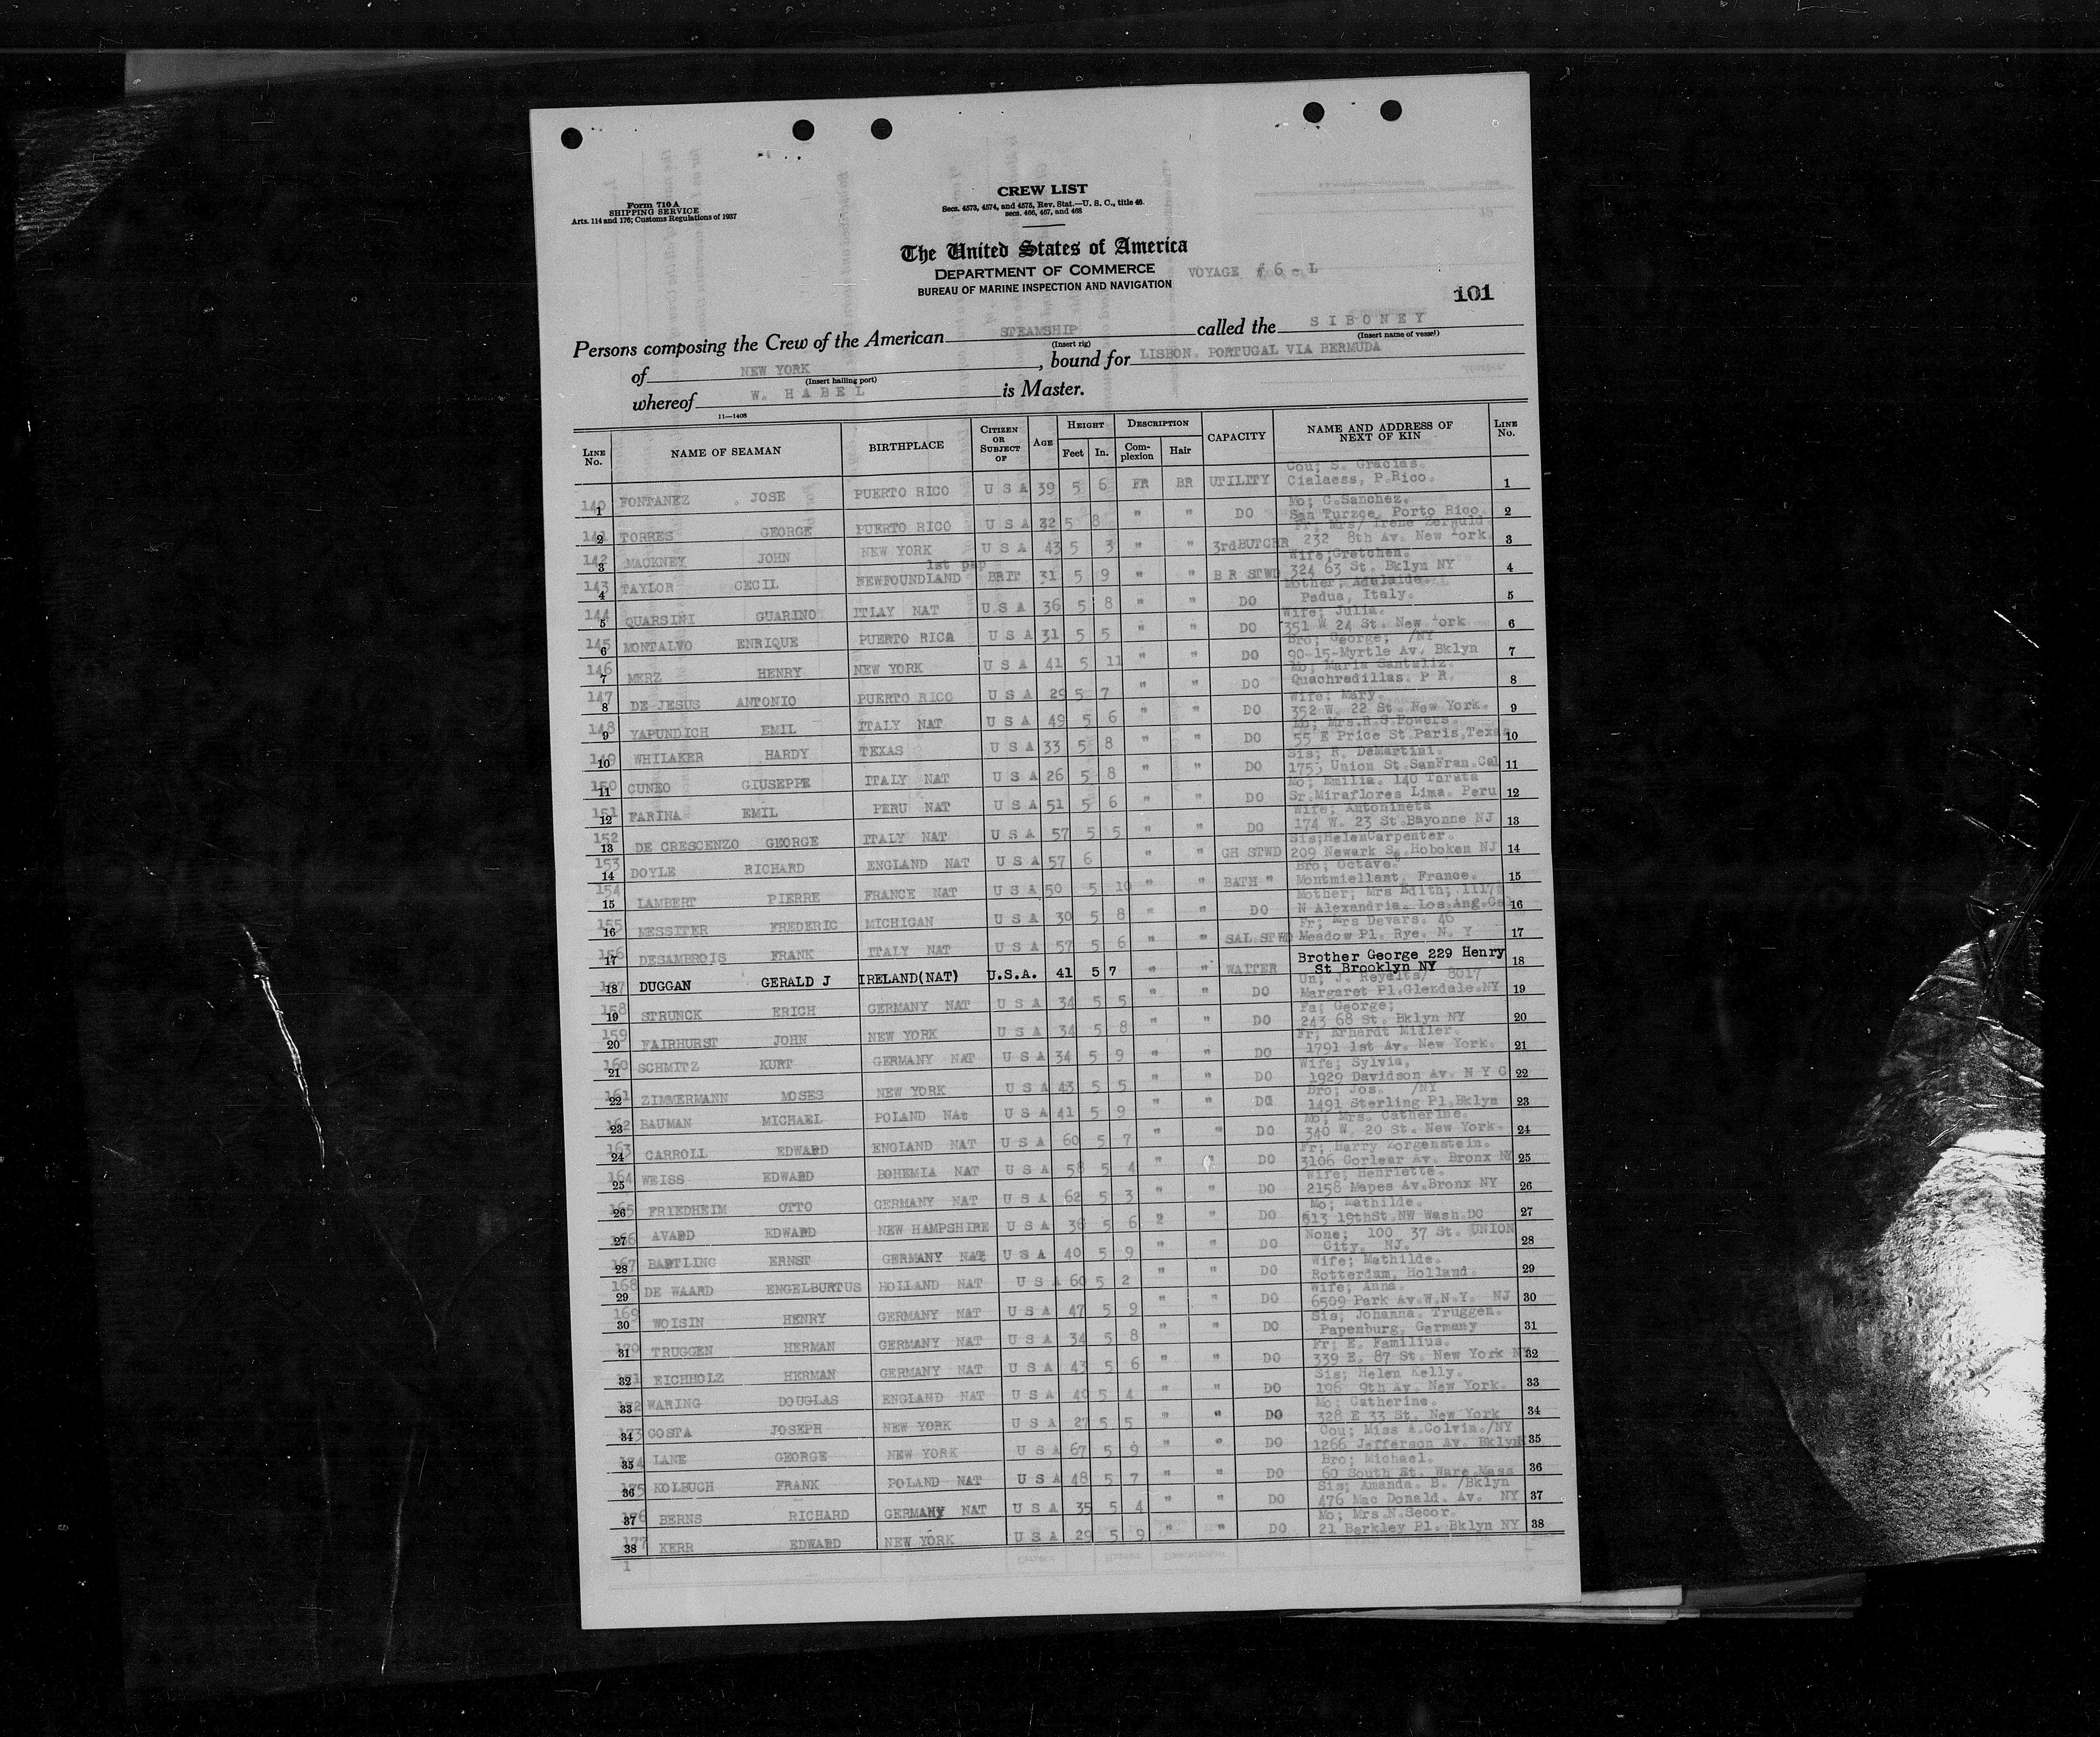 Form 710 A
SHIPPING SERVICE
Arts. 114 and 176; Customs Regulations of 1937
CREW LIST
Secs. 4573, 4574, and 4575, Rev. Stat.—U. S. C., title 46.
secs. 466, 467, and 468
The United States of America
DEPARTMENT OF COMMERCE
BUREAU OF MARINE INSPECTION AND NAVIGATION
VOYAGE # 6 - L
101
Persons composing the Crew of the American STEAMSHIP called the S I B O N E Y
(Insert rig) (Insert name of vessel)
of NEW YORK, bound for LISBON. PORTUGAL VIA BERMUDA
(Insert hailing port)
whereof W. H A B E L is Master.
11—1408
LINE No. NAME OF SEAMAN BIRTHPLACE CITIZEN OR SUBJECT OF AGE HEIGHT Feet In. DESCRIPTION Complexion Hair CAPACITY NAME AND ADDRESS OF NEXT OF KIN LINE No.
140 1 FONTANEZ JOSE PUERTO RICO U S A 39 5 6 FR BR UTILITY Cou; S. Gracias. Cialaess, P.Rico. 1
141 2 TORRES GEORGE PUERTO RICO U S A 32 5 8 " " DO Mo; C.Sanchez. San Turzce, Porto Rico. 2
142 3 MACKNEY JOHN NEW YORK U S A 43 5 3 " " 3rdBUTCHR Fr; Mrs/ Irene Zerwuld. 232 8th Av. New York. 3
143 4 TAYLOR CECIL 1st pap NEWFOUNDLAND BRIT 31 5 9 " " B R STWD Wife;Gretchen. 324 63 St. Bklyn NY 4
144 5 QUARSINI GUARINO ITLAY NAT U S A 36 5 8 " " DO Mother, Adelaide. Padua, Italy. 5
145 6 MONTALVO ENRIQUE PUERTO RICA U S A 31 5 5 " " DO Wife; Julia. 351 W 24 St. New York 6
146 7 MERZ HENRY NEW YORK U S A 41 5 11 " " DO Bro; George, /NY 90-15-Myrtle Av. Bklyn 7
147 8 DE JESUS ANTONIO PUERTO RICO U S A 29 5 7 " " DO Mo; Maria Santaliz. Quachradillas. P R. 8
148 9 YAPUNDICH EMIL ITALY NAT U S A 49 5 6 " " DO Wife; Mary. 352 W. 22 St. New York. 9
149 10 WHILAKER HARDY TEXAS U S A 33 5 8 " " DO Mo; Mrs.R.S.Powers. 55 E Price St.Paris,Texas 10
150 11 CUNEO GIUSEPPE ITALY NAT U S A 26 5 8 " " DO Sis; R. DeMartini. 1755 Union St.SanFran.Cal 11
151 12 FARINA EMIL PERU NAT U S A 51 5 6 " " DO Mo; Emilia. 140 Tarata Sr.Miraflores Lima. Peru 12
152 13 DE CRESCENZO GEORGE ITALY NAT U S A 57 5 5 " " DO Wife; Antonineta 174 W. 23 St.Bayonne NJ 13
153 14 DOYLE RICHARD ENGLAND NAT U S A 57 6 " " GH STWD Sis;HelenCarpenter. 209 Newark St.Hoboken NJ 14
154 15 LAMBERT PIERRE FRANCE NAT U S A 50 5 10 " " BATH " Bro; Octave. Montmiellant, France. 15
155 16 MESSITER FREDERIC MICHIGAN U S A 30 5 8 " " DO Mother; Mrs Edith; N Alexandria. Los.Ang.Cal 16
156 17 DESAMBROIS FRANK ITALY NAT U S A 57 5 6 " " SAL.STWD Fr; Mrs Devars. 46 Meadow Pl. Rye. N. Y 17
157 18 DUGGAN GERALD J IRELAND(NAT) U.S.A. 41 5 7 " " WAITER Brother George 229 Henry St Brooklyn NY 18
158 19 STRUNCK ERICH GERMANY NAT U S A 34 5 5 " " DO Un; J. Reyelts/ 8017 Margaret Pl.Glendale.NY 19
159 20 FAIRHURST JOHN NEW YORK U S A 34 5 8 " " DO Fa; George; 243 68 St. Bklyn NY 20
160 21 SCHMITZ KURT GERMANY NAT U S A 34 5 9 " " DO Fr; Erhardt Miller. 1791 1st Av. New York. 21
161 22 ZIMMERMANN MOSES NEW YORK U S A 43 5 5 " " DO Wife; Sylvia, 1929 Davidson Av. N Y C 22
162 23 BAUMAN MICHAEL POLAND NAt U S A 41 5 9 " " DO Bro; Jos. /NY 1491 Sterling Pl.Bklyn 23
163 24 CARROLL EDWARD ENGLAND NAT U S A 60 5 7 " " DO Mo; Mrs. Catherine. 340 W. 20 St. New York. 24
164 25 WEISS EDWARD BOHEMIA NAT U S A 58 5 4 " " DO Fr; Harry Korgenstein. 3106 Corlear Av. Bronx NY 25
165 26 FRIEDHEIM OTTO GERMANY NAT U S A 62 5 3 " " DO Wife; Henriette. 2158 Mapes Av.Bronx NY 26
166 27 AVARD EDWARD NEW HAMPSHIRE U S A 36 5 6 2 " DO Mo; Mathilde. 613 19thSt.NW Wash.DC 27
167 28 BARTLING ERNST GERMANY NAT U S A 40 5 9 " " DO None; 100 37 St. UNION City. NJ. 28
168 29 DE WAARD ENGELBURTUS HOLLAND NAT U S A 60 5 2 " " DO Wife; Mathilde. Rotterdam, Holland. 29
169 30 WOISIN HENRY GERMANY NAT U S A 47 5 9 " " DO Wife; Anna. 6509 Park Av.W.N.Y. NJ 30
170 31 TRUGGEN HERMAN GERMANY NAT U S A 34 5 8 " " DO Sis; Johanna. Truggen. Papenburg, Germany 31
171 32 EICHHOLZ HERMAN GERMANY NAT U S A 43 5 6 " " DO Fr; E. Familius. 339 E. 87 St. New York NY 32
172 33 WARING DOUGLAS ENGLAND NAT U S A 40 5 4 " " DO Sis; Helen Kelly. 196 9th Av. New York. 33
173 34 COSTA JOSEPH NEW YORK U S A 27 5 5 " " DO Mo; Catherine. 328 E 33 St. New York 34
174 35 LANE GEORGE NEW YORK U S A 67 5 9 " " DO Cou; Miss A.Colvin./NY 1266 Jefferson Av. Bklyn 35
175 36 KOLBUCH FRANK POLAND NAT U S A 48 5 7 " " DO Bro; Michael. 60 South St. Ware Mass 36
176 37 BERNS RICHARD GERMANY NAT U S A 35 5 4 " " DO Sis; Amanda. B. /Bklyn 476 Mac Donald. Av. NY 37
177 38 KERR EDWARD NEW YORK U S A 29 5 9 " " DO Mo; Mrs.N.Secor. 21 Berkley Pl. Bklyn NY 38
1